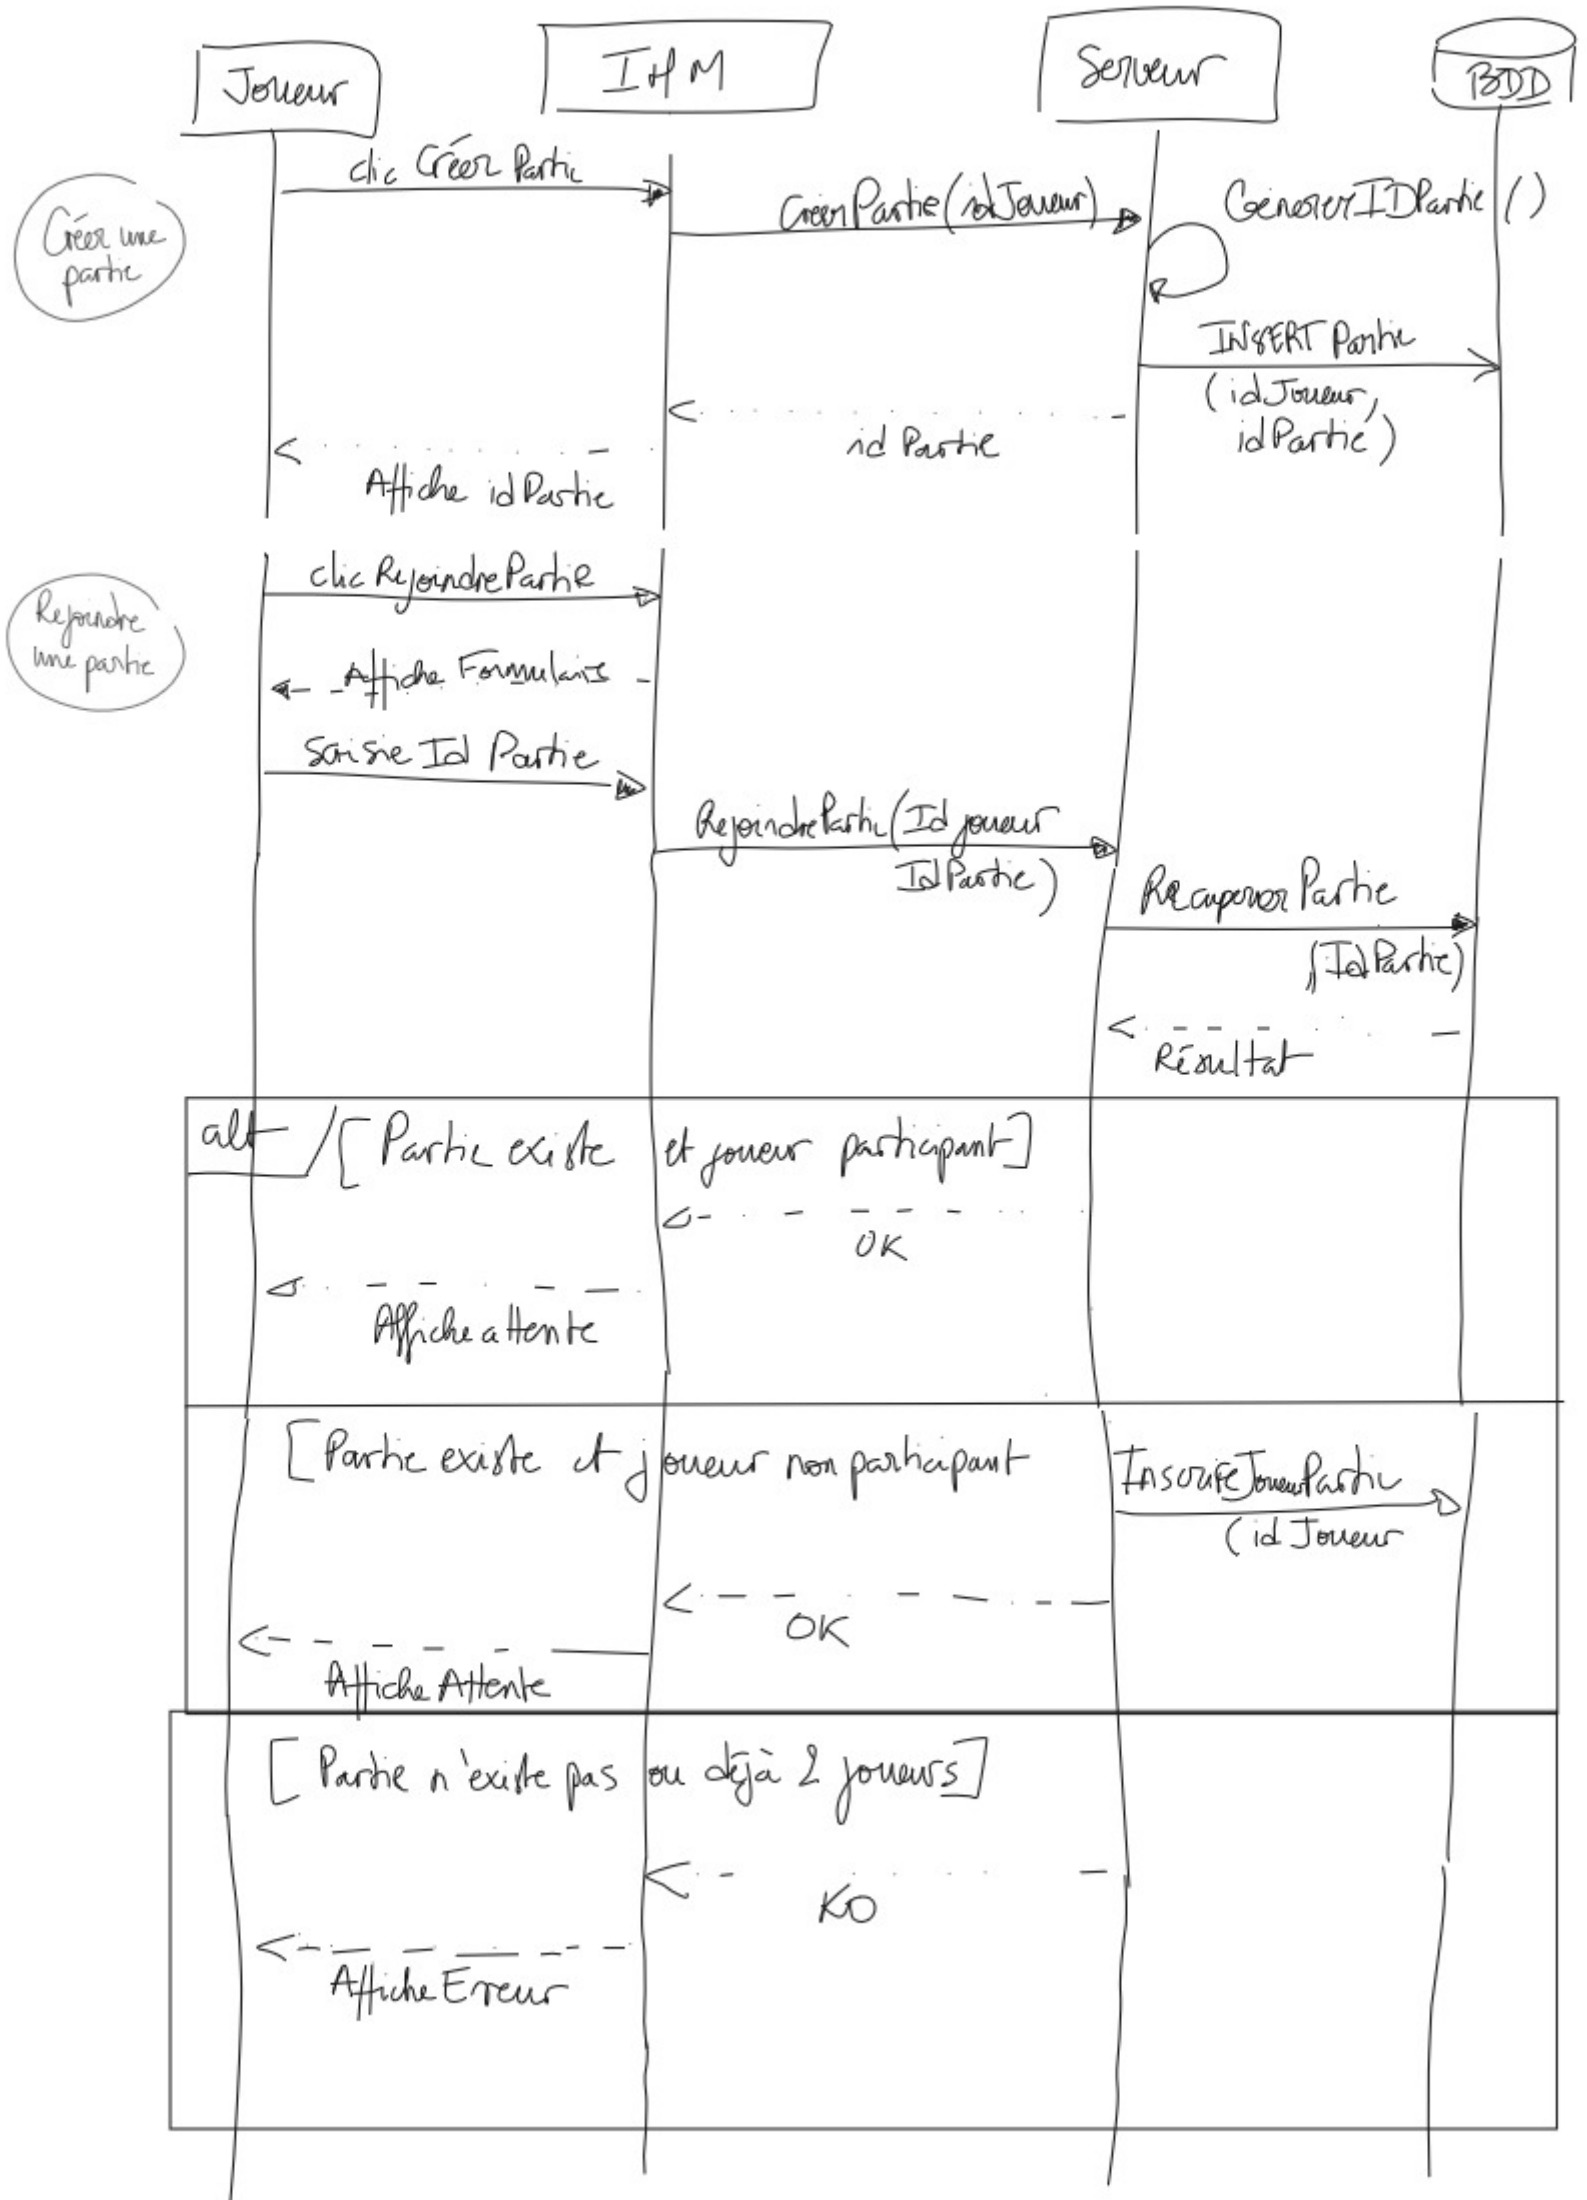 Joueur
IHM
Serveur
BDD
Créer une
partie
clic Créer Partie
CreerPartie(idJoueur)
GenererIDPartie()
INSERT Partie
(idJoueur,
idPartie)
id Partie
Affiche idPartie
Rejoindre
une partie
clic RejoindrePartie
Affiche Formulaire
Saisie Id Partie
RejoindrePartie(Id joueur
IdPartie)
RecupererPartie
(IdPartie)
Résultat
alt [Partie existe et joueur participant]
OK
Affiche attente
[Partie existe et joueur non participant
InscrireJoueurPartie
(idJoueur
OK
Affiche Attente
[Partie n'existe pas ou déjà 2 joueurs]
KO
Affiche Erreur